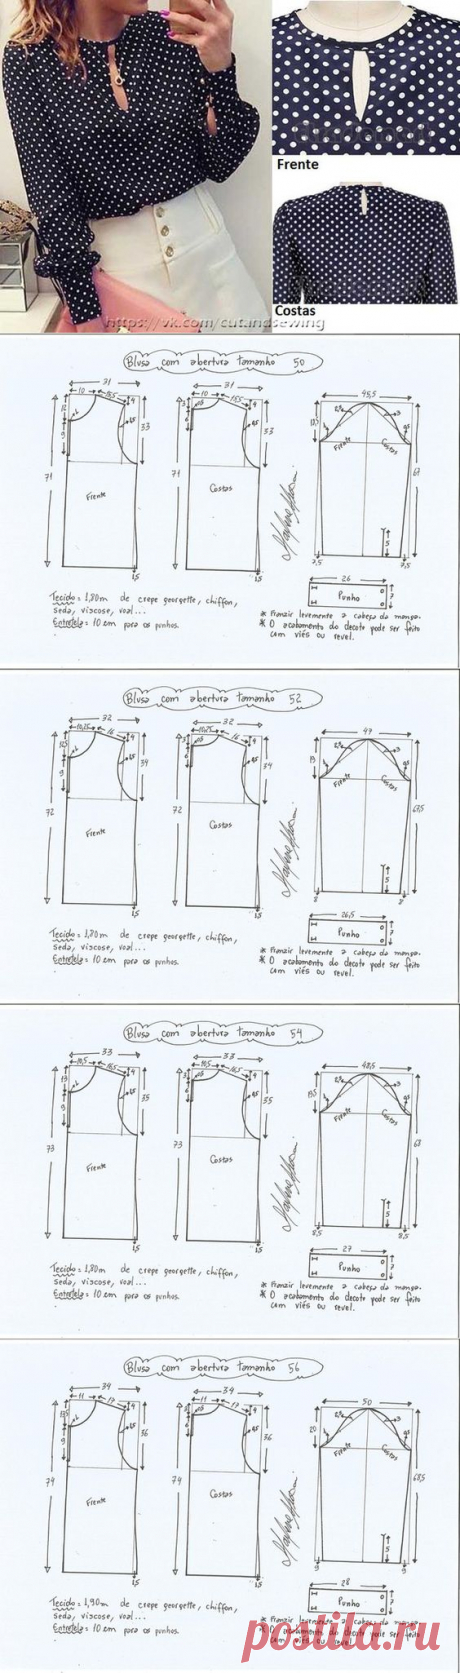 Frente
Costas
https://vk.com/cutandsewing
Blusa com abertura tamanho 50
31
10
15,5
4
33
9
71
Frente
1,5
31
10
15,5
4
33
71
Costas
1,5
45,5
Frente
Costas
67
5
7,5
7,5
26
Punho
7
Tecido = 1,80m de crepe georgette, chiffon,
seda, viscose, voal...
Entretela = 10 cm para os punhos.
* Franzir levemente a cabeça da manga.
* O acabamento do decote pode ser feito
com viés ou revel.
Blusa com abertura tamanho 52
32
10,25
16
4
34
12,5
9
72
Frente
1,5
32
10,25
16
4
34
72
Costas
1,5
47
19
Frente
Costas
67,5
5
8
8
26,5
Punho
7
Tecido = 1,80m de crepe georgette, chiffon,
seda, viscose, voal...
Entretela = 10 cm para os punhos.
* Franzir levemente a cabeça da manga.
* O acabamento do decote pode ser feito
com viés ou revel.
Blusa com abertura tamanho 54
33
10,5
16,5
4
35
13
9
73
Frente
1,5
33
10,5
16,5
4
35
73
Costas
1,5
48,5
19,5
Frente
Costas
5
8,5
8,5
27
Punho
7
Tecido = 1,80m de crepe georgette, chiffon,
seda, viscose, voal...
Entretela = 10 cm para os punhos.
* Franzir levemente a cabeça da manga.
* O acabamento do decote pode ser feito
com viés ou revel.
Blusa com abertura tamanho 56
34
11
17
4
36
13,5
9
74
Frente
1,5
34
11
17
4
36
74
Costas
1,5
50
20
Frente
Costas
68,5
5
9
9
28
Punho
7
Tecido = 1,90m de crepe georgette, chiffon,
seda, viscose, voal...
Entretela = 10 cm para os punhos.
* Franzir levemente a cabeça da manga.
* O acabamento do decote pode ser feito
com viés ou revel.
postila.ru